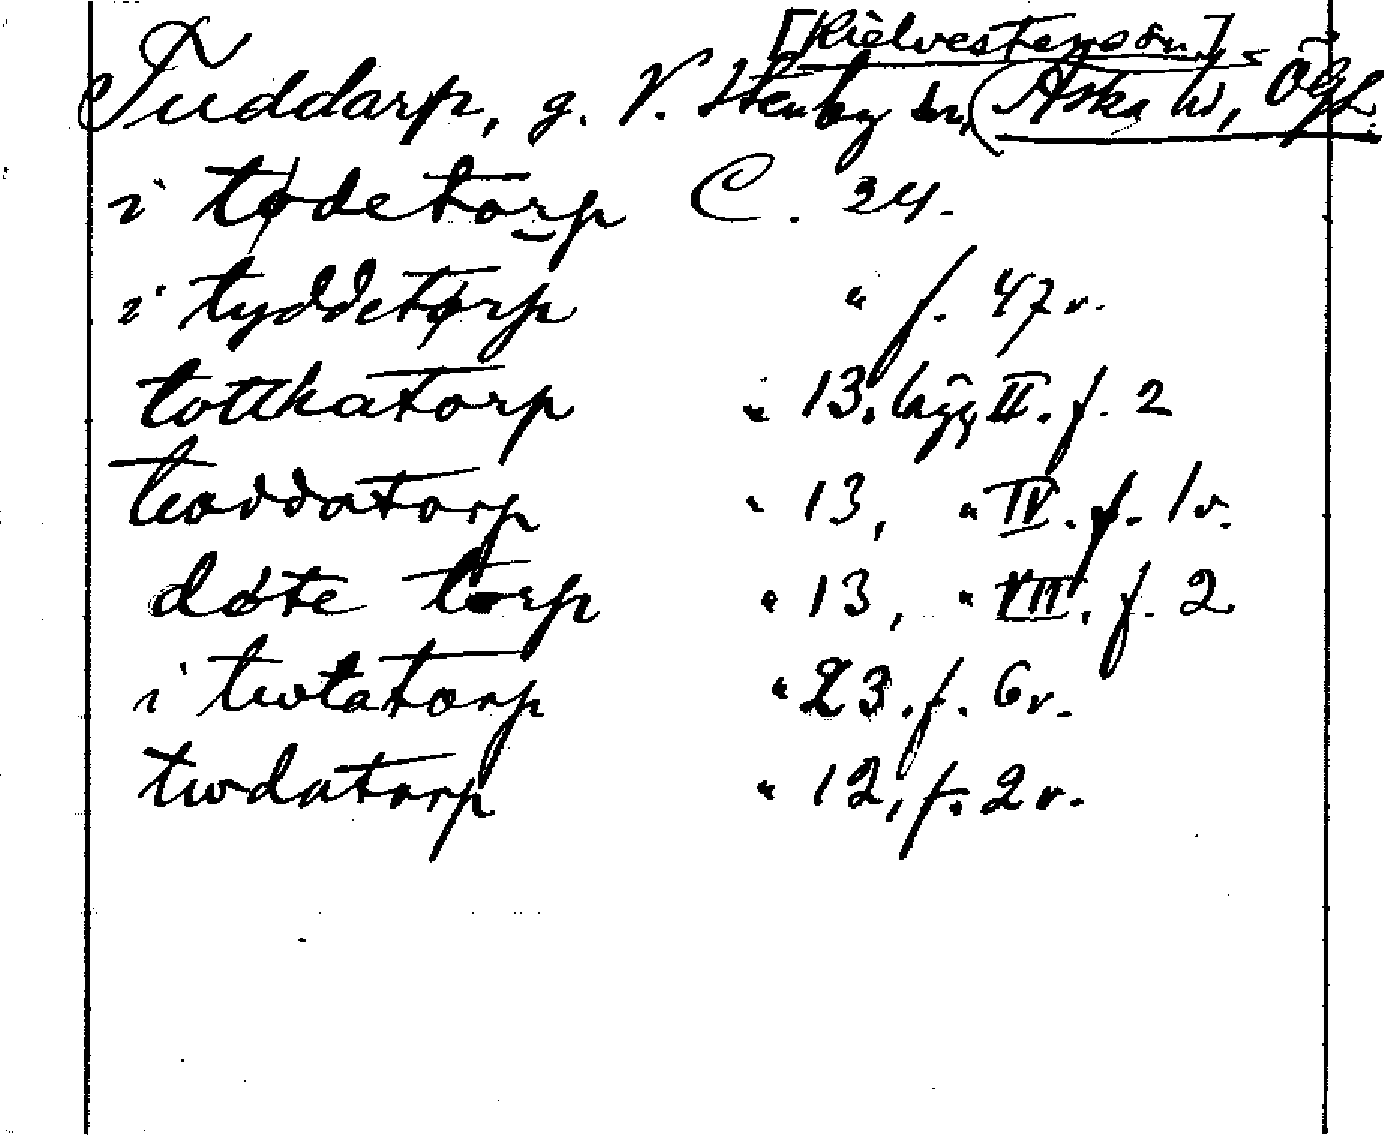 [Kielvestensson]
Tuddarp, g. V. Stenby sn, (Aska hd, Ögl.
i tødetorp C. 24.
i tyddetørp " f. 47 v.
totthatorp " 13. lägg II. f. 2
twddatorp " 13, " IV. f. 1 v.
døte torp " 13, " VII. f. 2
i twtatorp " 23. f. 6 v.
twdatorp " 12, f. 2 v.